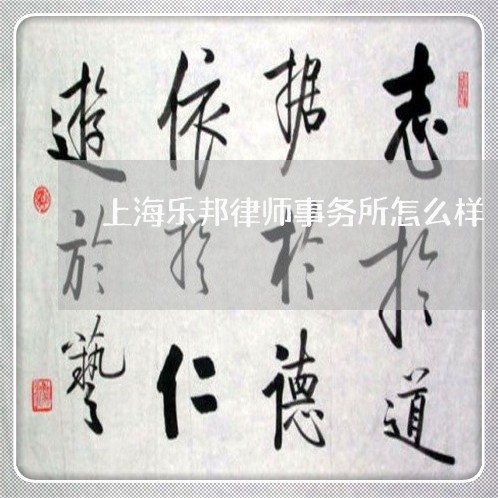 志於道
据於德
依於仁
遊於藝
上海乐邦律师事务所怎么样